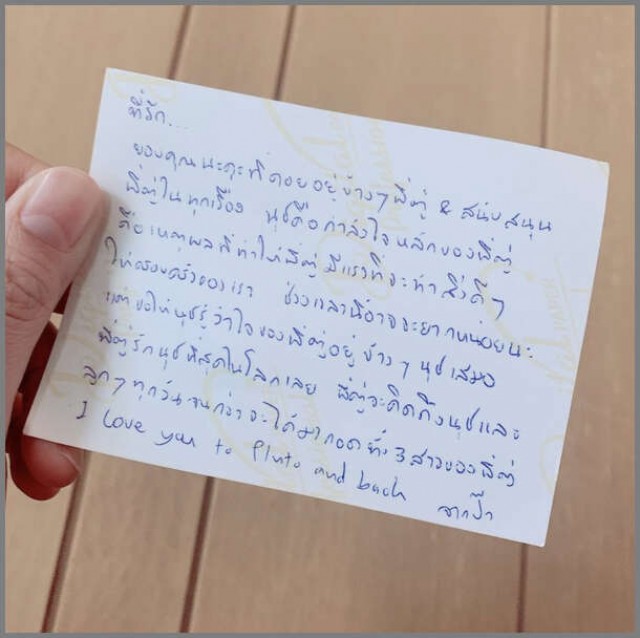 ที่รัก...
ขอบคุณนะคะที่คอยอยู่ข้างๆ พี่ตู่ & สนับสนุน
พี่ตู่ในทุกเรื่อง นุชคือกำลังใจหลักของพี่ตู่
คือเหตุผลที่ทำให้พี่ตู่มีแรงที่จะทำสิ่งดีๆ
ให้ครอบครัวของเรา ช่วงเวลานี้อาจจะยากหน่อยนะ
แต่ขอให้นุชรู้ว่าใจของพี่ตู่อยู่ข้างๆ นุชเสมอ
พี่ตู่รักนุชที่สุดในโลกเลย พี่ตู่จะคิดถึงนุชและ
ลูกๆ ทุกวันจนกว่าจะได้มากอดทั้ง 3 สาวของพี่ตู่
I love you to Pluto and back จากป๊า